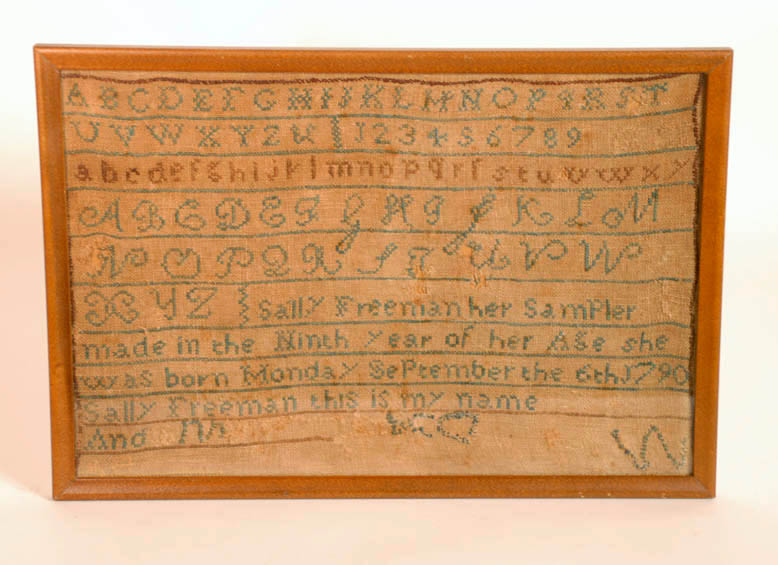 A B C D E F G H I J K L M N O P Q R S T
U V W X Y Z & 1 2 3 4 5 6 7 8 9
a b c d e f g h i j k l m n o p q r ſ s t u v w x y
A B C D E F G H I J K L M
N O P Q R S T U V W
X Y Z Sally Freeman her Sampler
made in the Ninth year of her Age she
was born Monday September the 6th 1790
Sally Freeman this is my name
And